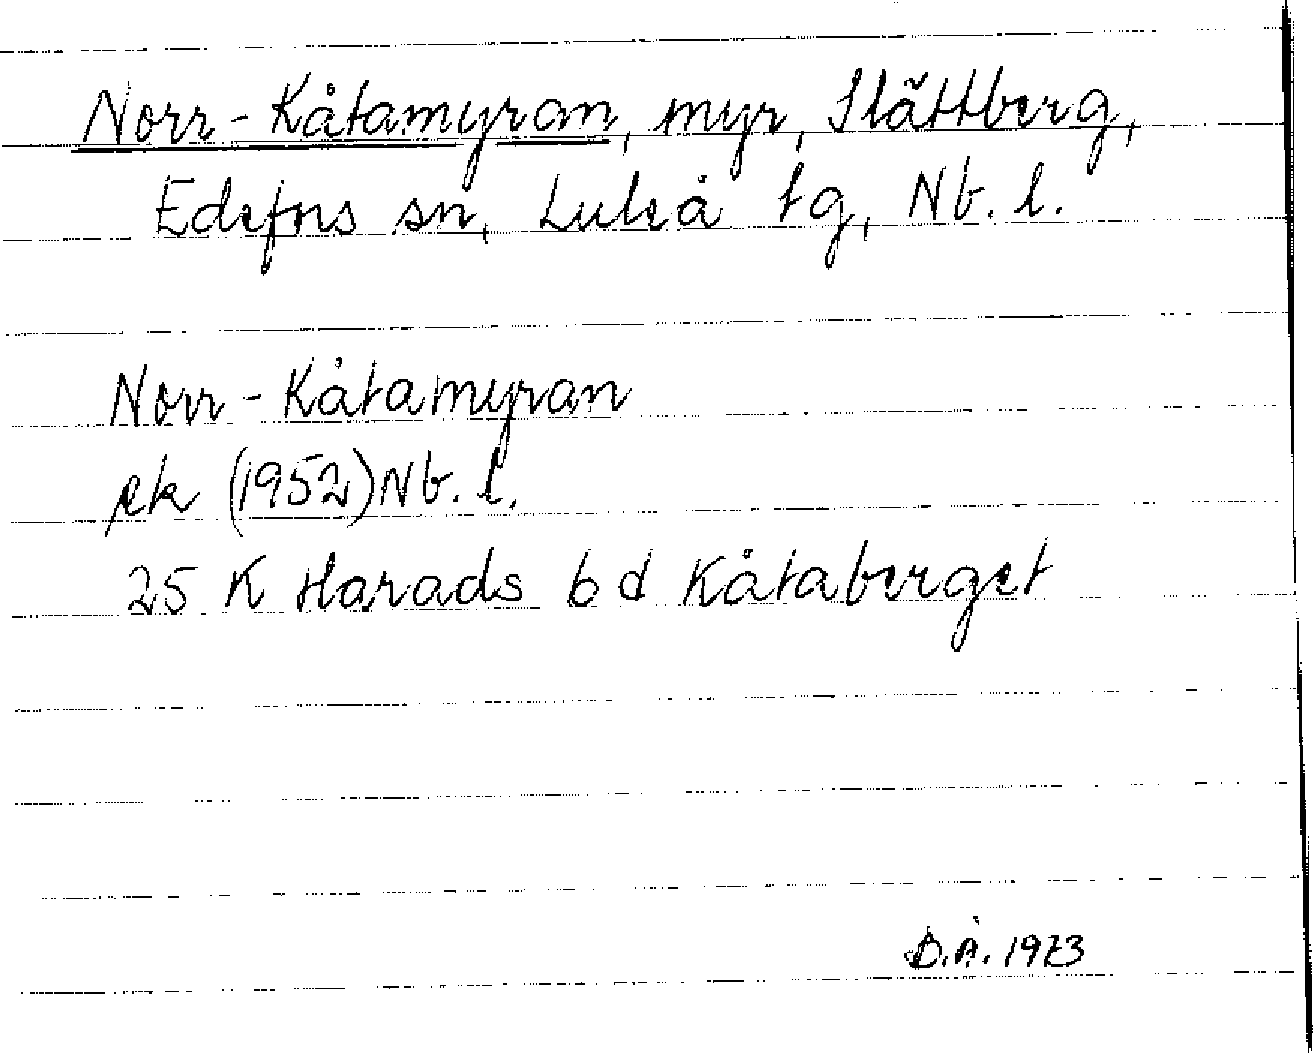 Norr-Kåtamyran, myr, Slättberg,
Edefors sn, Luleå tg, Nb. l.
Norr-Kåtamyran
ek (1952) Nb. l.
25 K Harads 6 d Kåtaberget
B.Å. 1973